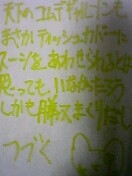 天下のコムデギャルソンも
まさかティッシュカバーに
スーツを、あわせられるとは
思っても、いなかたろう
しかも勝てまくりだし
つづく